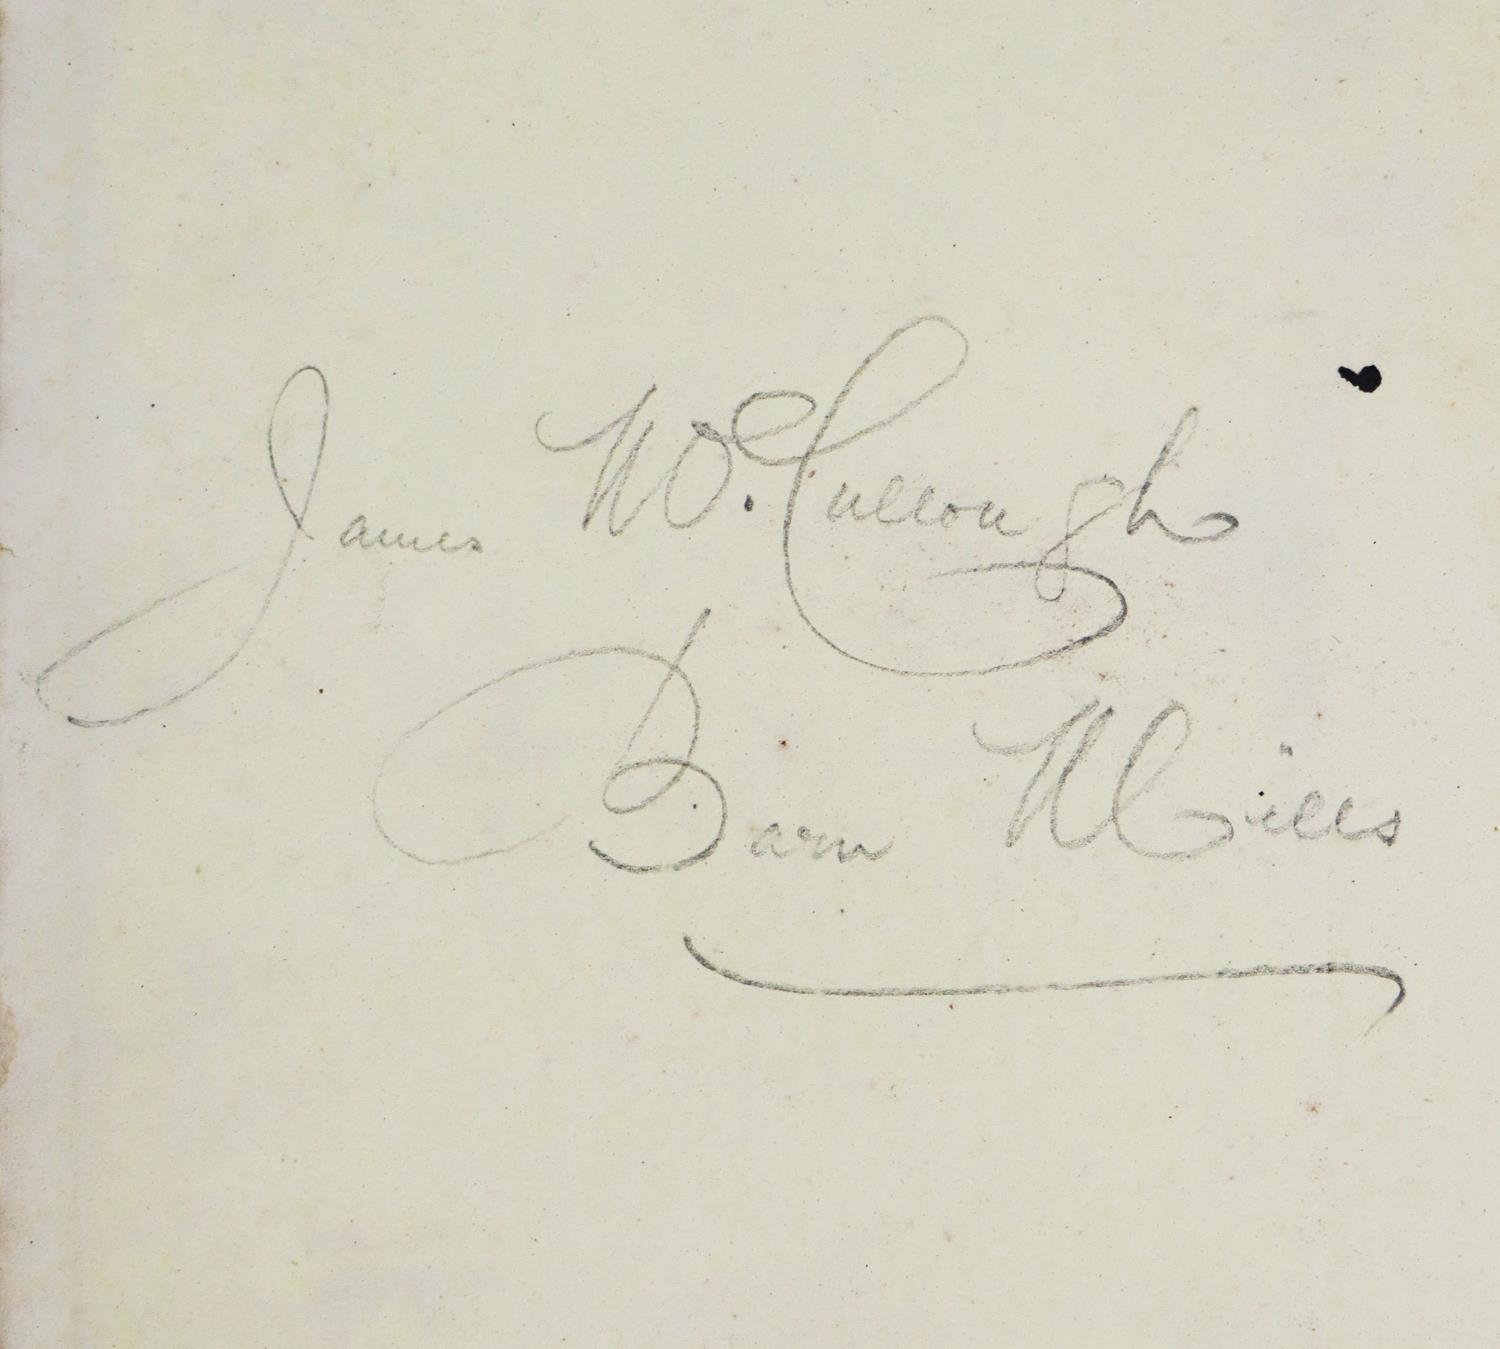 James Mc. Cullough
Barn Mills